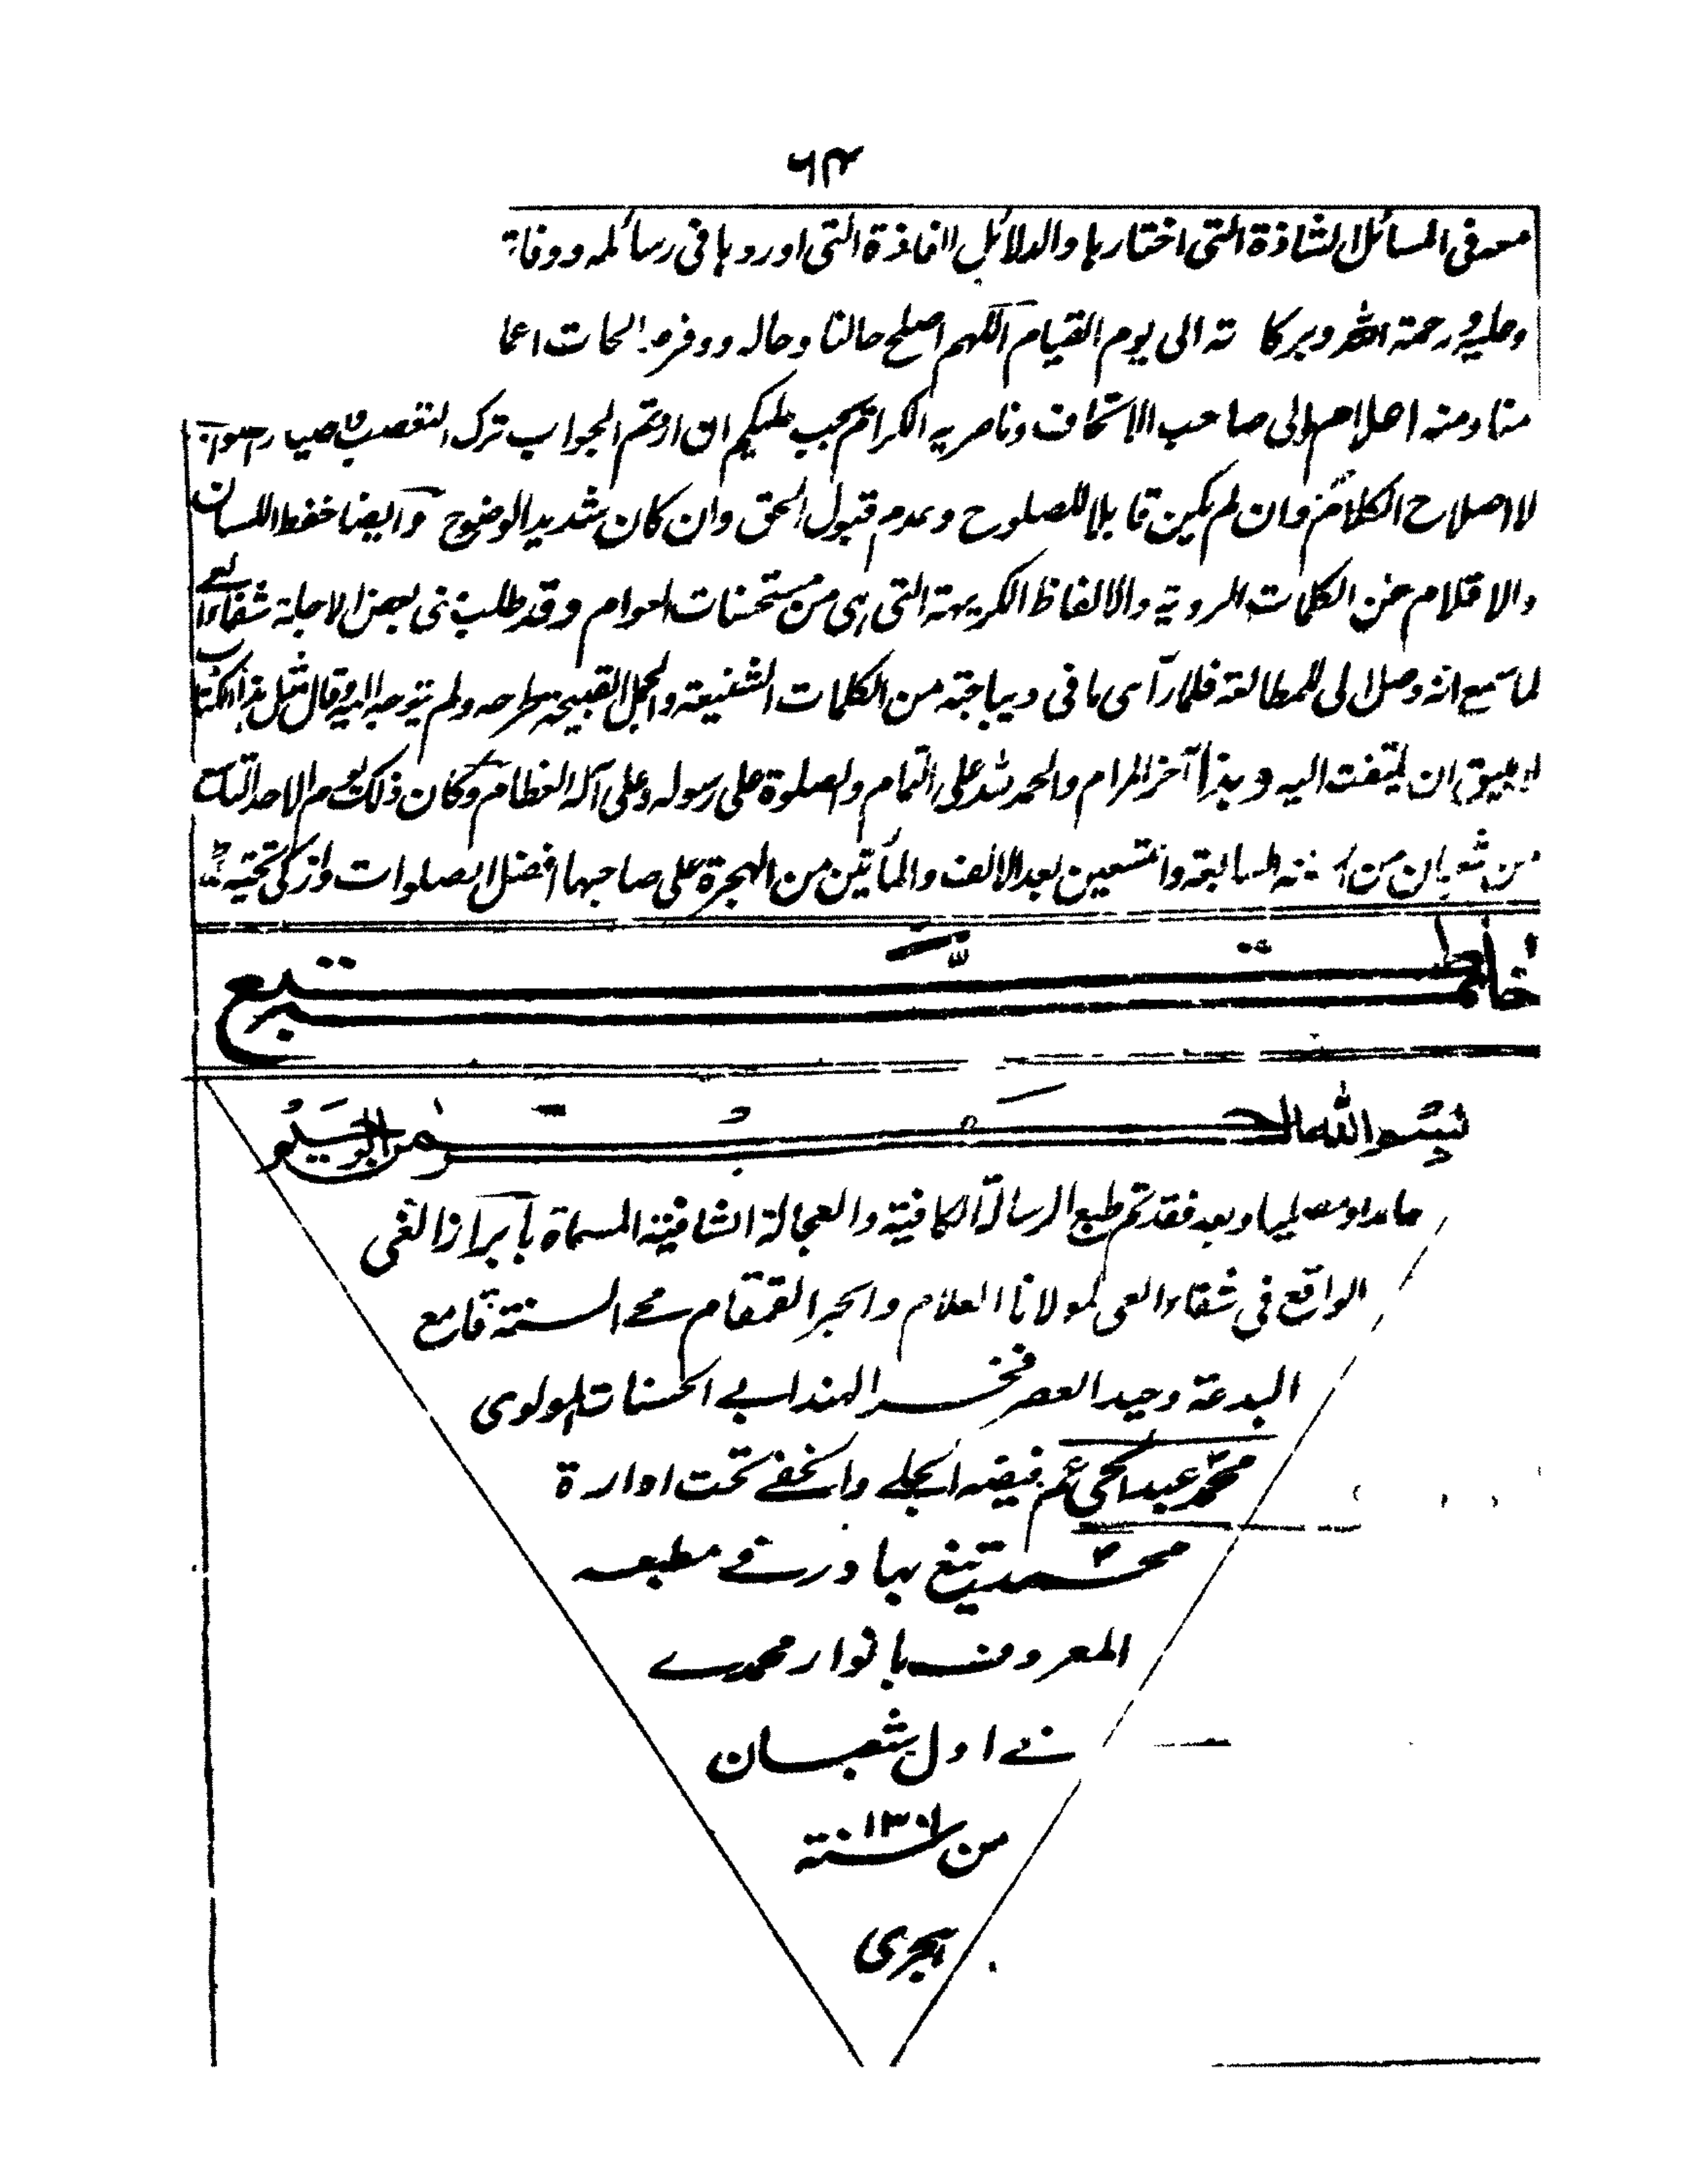 ٦٤
معه فى المسائل الشاذة التى اختارها والدلائل الفاذة التى اوردها فى رسائله
وعليه ورحمة الله وبركاته الى يوم القيام اللهم اصلح حالنا وحاله
منا ومنه والى صاحب الاتحاف وناصريه الكرام يجب عليكم ان اردتم الجواب ترك التعصب
لا اصلاح الكلام وان لم يكن قابلا للصلوح وعدم قبول الحق وان كان شديد الوضوح وايضا حفظ اللسان
والاقلام عن الكلمات الردية والالفاظ الكريهة التى هى من مستحسنات العوام وقد طلب منى بعض الاجلة شفاء العى
لما سمع انه وصل الى للمطالعة فلما رآى ما فى ديباجته من الكلمات الشنيعة والجمل القبيحة طرحه ولم يتوجه اليه وقال مثل هذا الكتاب
لا يليق ان يلتفت اليه وهذا آخر المرام والحمد لله على التمام والصلوة على رسوله وعلى آله العظام وكان ذلك يوم الاحد
من شعبان من السنة السابعة والتسعين بعد الالف والمأتين من الهجرة على صاحبها افضل الصلوات وازكى تحية
خاتمة الطبع
بسم الله الرحمن الرحيم
حامدا ومصليا وبعد فقد تم طبع الرسالة الكافية والعجالة الشافية المسماة بابراز الغى
الواقع فى شفاء العى لمولانا العلام والحبر القمقام محے السنة قامع
البدعة وحيد العصر فخر الهند ابے الحسنات المولوى
محمد عبد الحى عم فيضه الجلے والخفے تحت ادارة
محمد تيغ بهادر فے مطبعه
المعروف بانوار محمدے
فے اول شعبان
من سنة ١٣٠١
هجرى